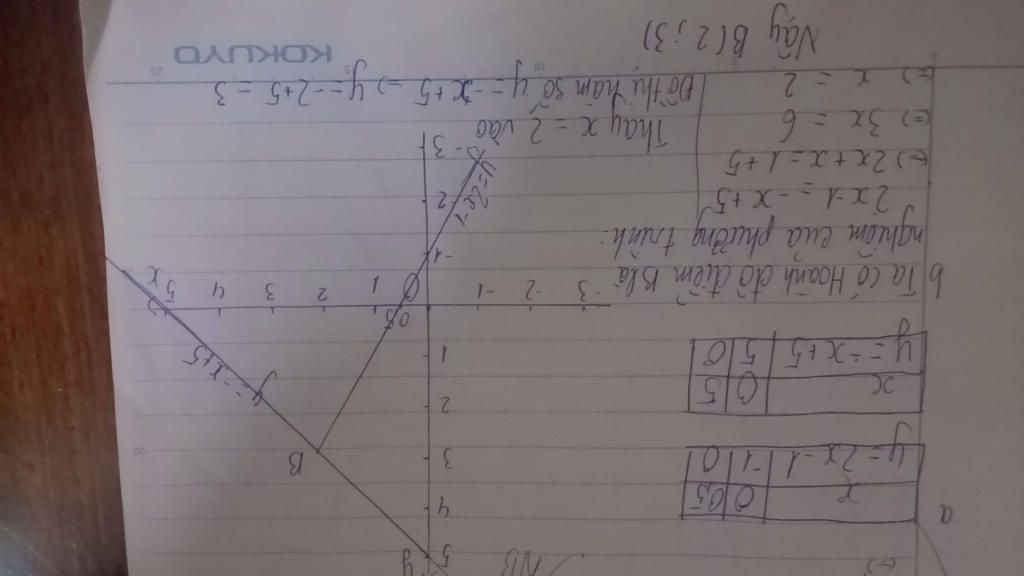 NB
a
x 0 0,5
y = 2x-1 -1 0
x 0 5
y = -x+5 5 0
b Ta có Hoành độ điểm B là
nghiệm của phương trình:
2x-1 = -x+5
<=> 2x+x = 1+5
<=> 3x = 6
<=> x = 2
Thay x = 2 vào
Đồ thị hàm số y = -x+5 => y = -2+5 = 3
Vậy B(2;3)
y
5
4
3
B
2
1
y = -x+5
-3 -2 -1 0,5 1 2 3 4 5 x
O
-1
-2
y = 2x-1
-3
KOKUYO
0 5 10 20
20